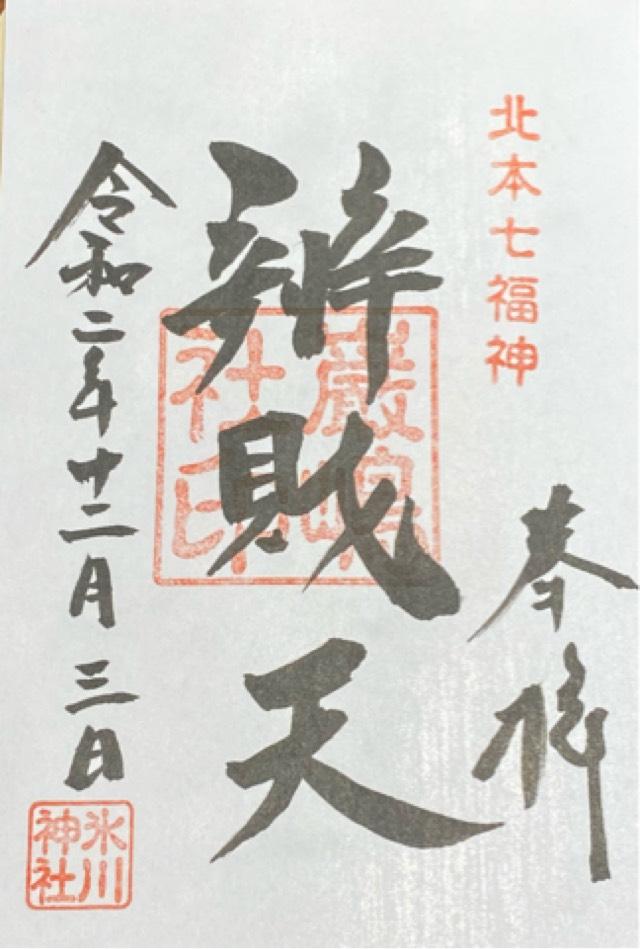 北本七福神
奉拝
辨財天
巌嶋
社印
令和二年十二月三日
氷川
神社